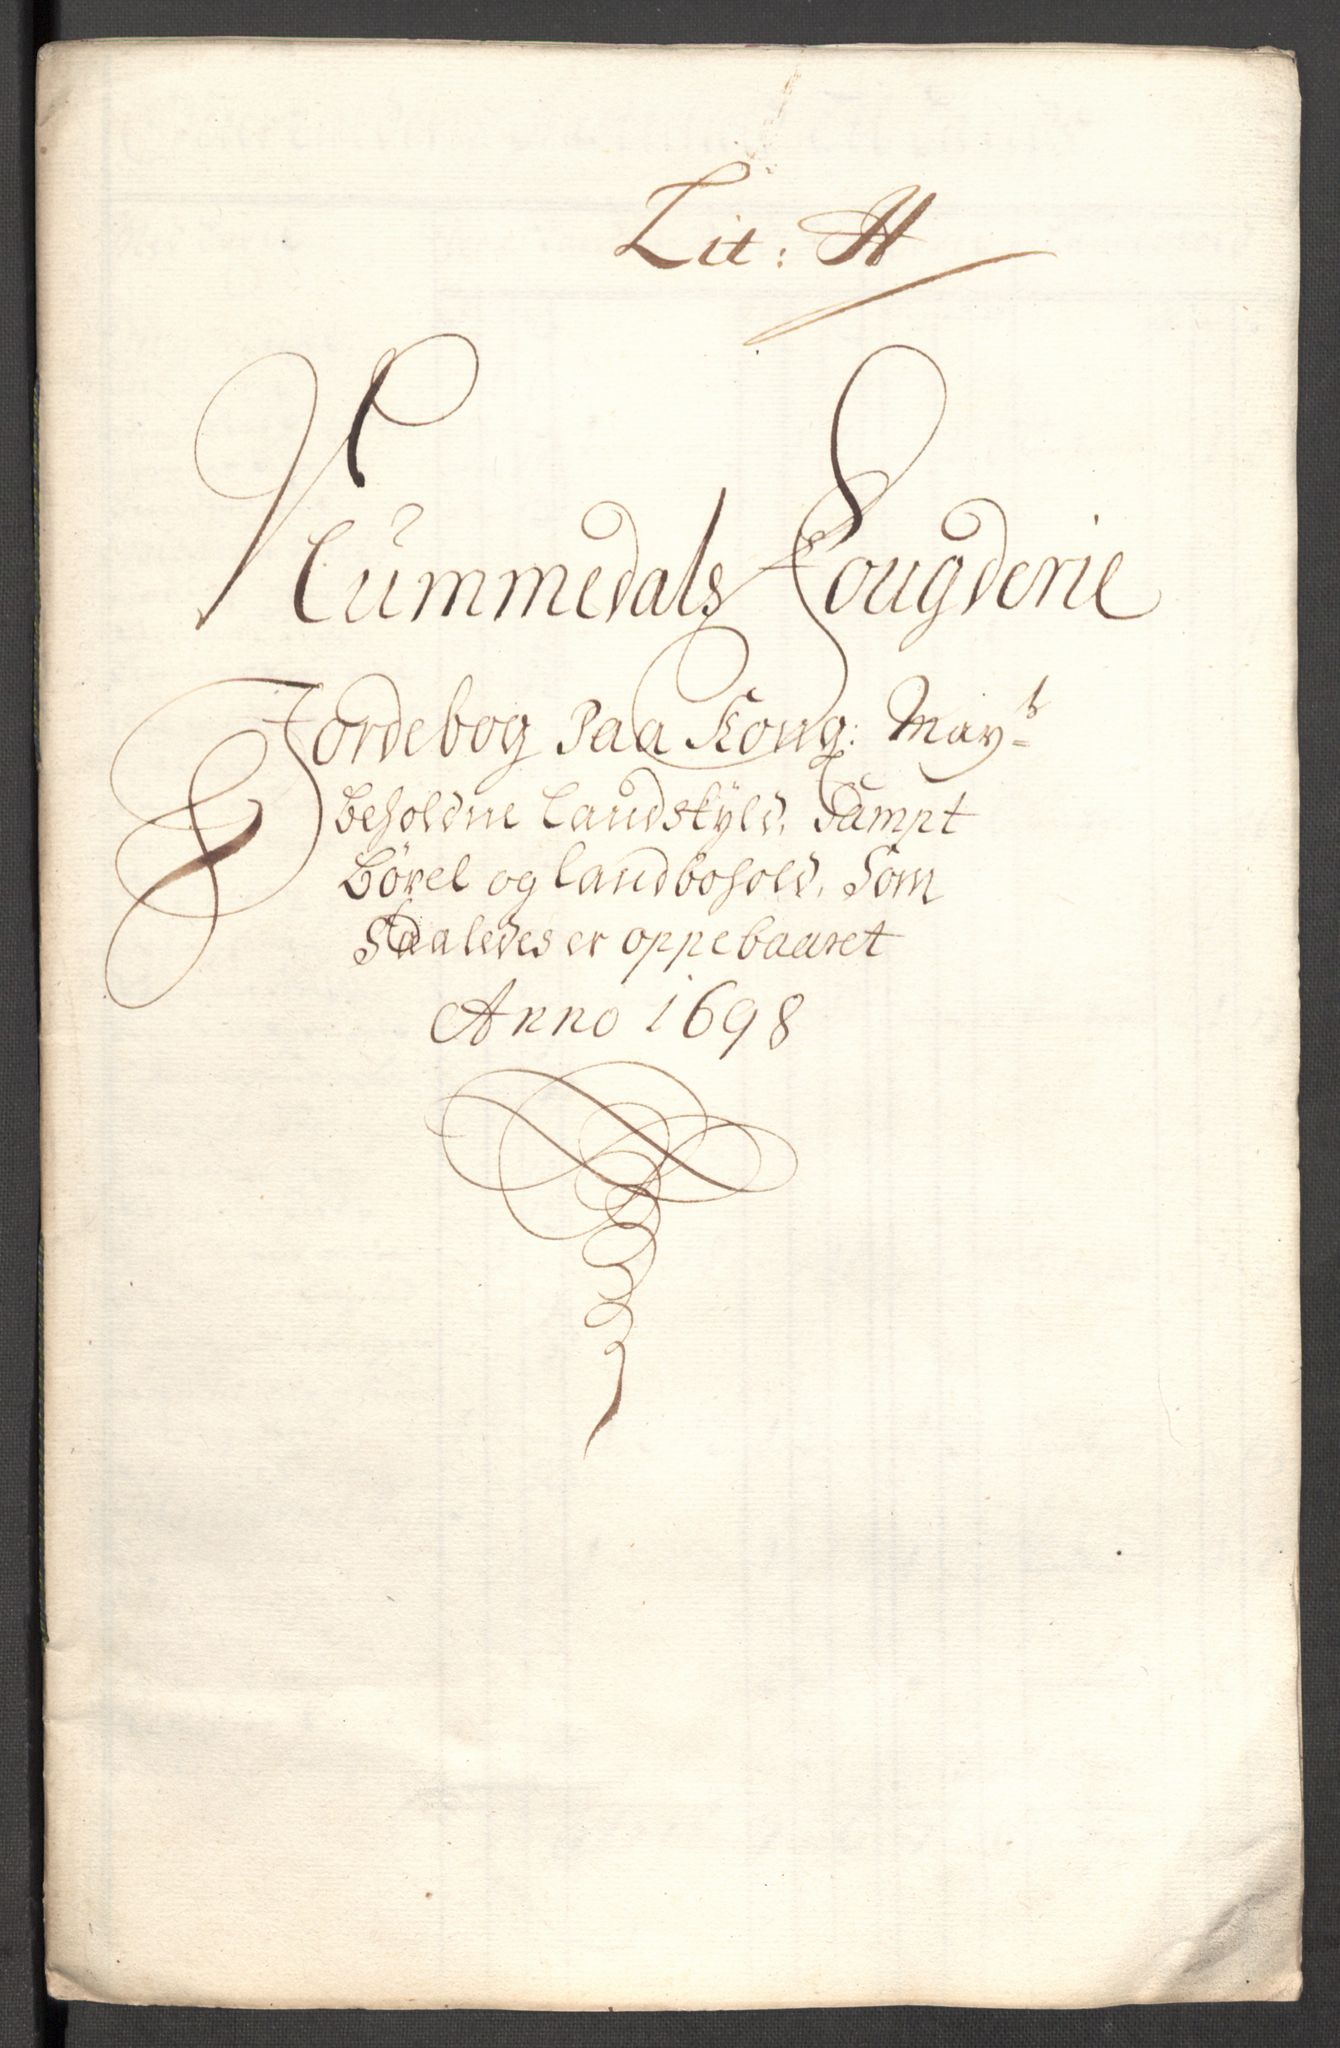 Lit: H
Nummedals Fougderie
Jordebog Paa Kong: Mayts
beholdne Landskyld, Sampt
Børel og Landbohold, Som
Saaledes er oppebaaret
Anno 1698